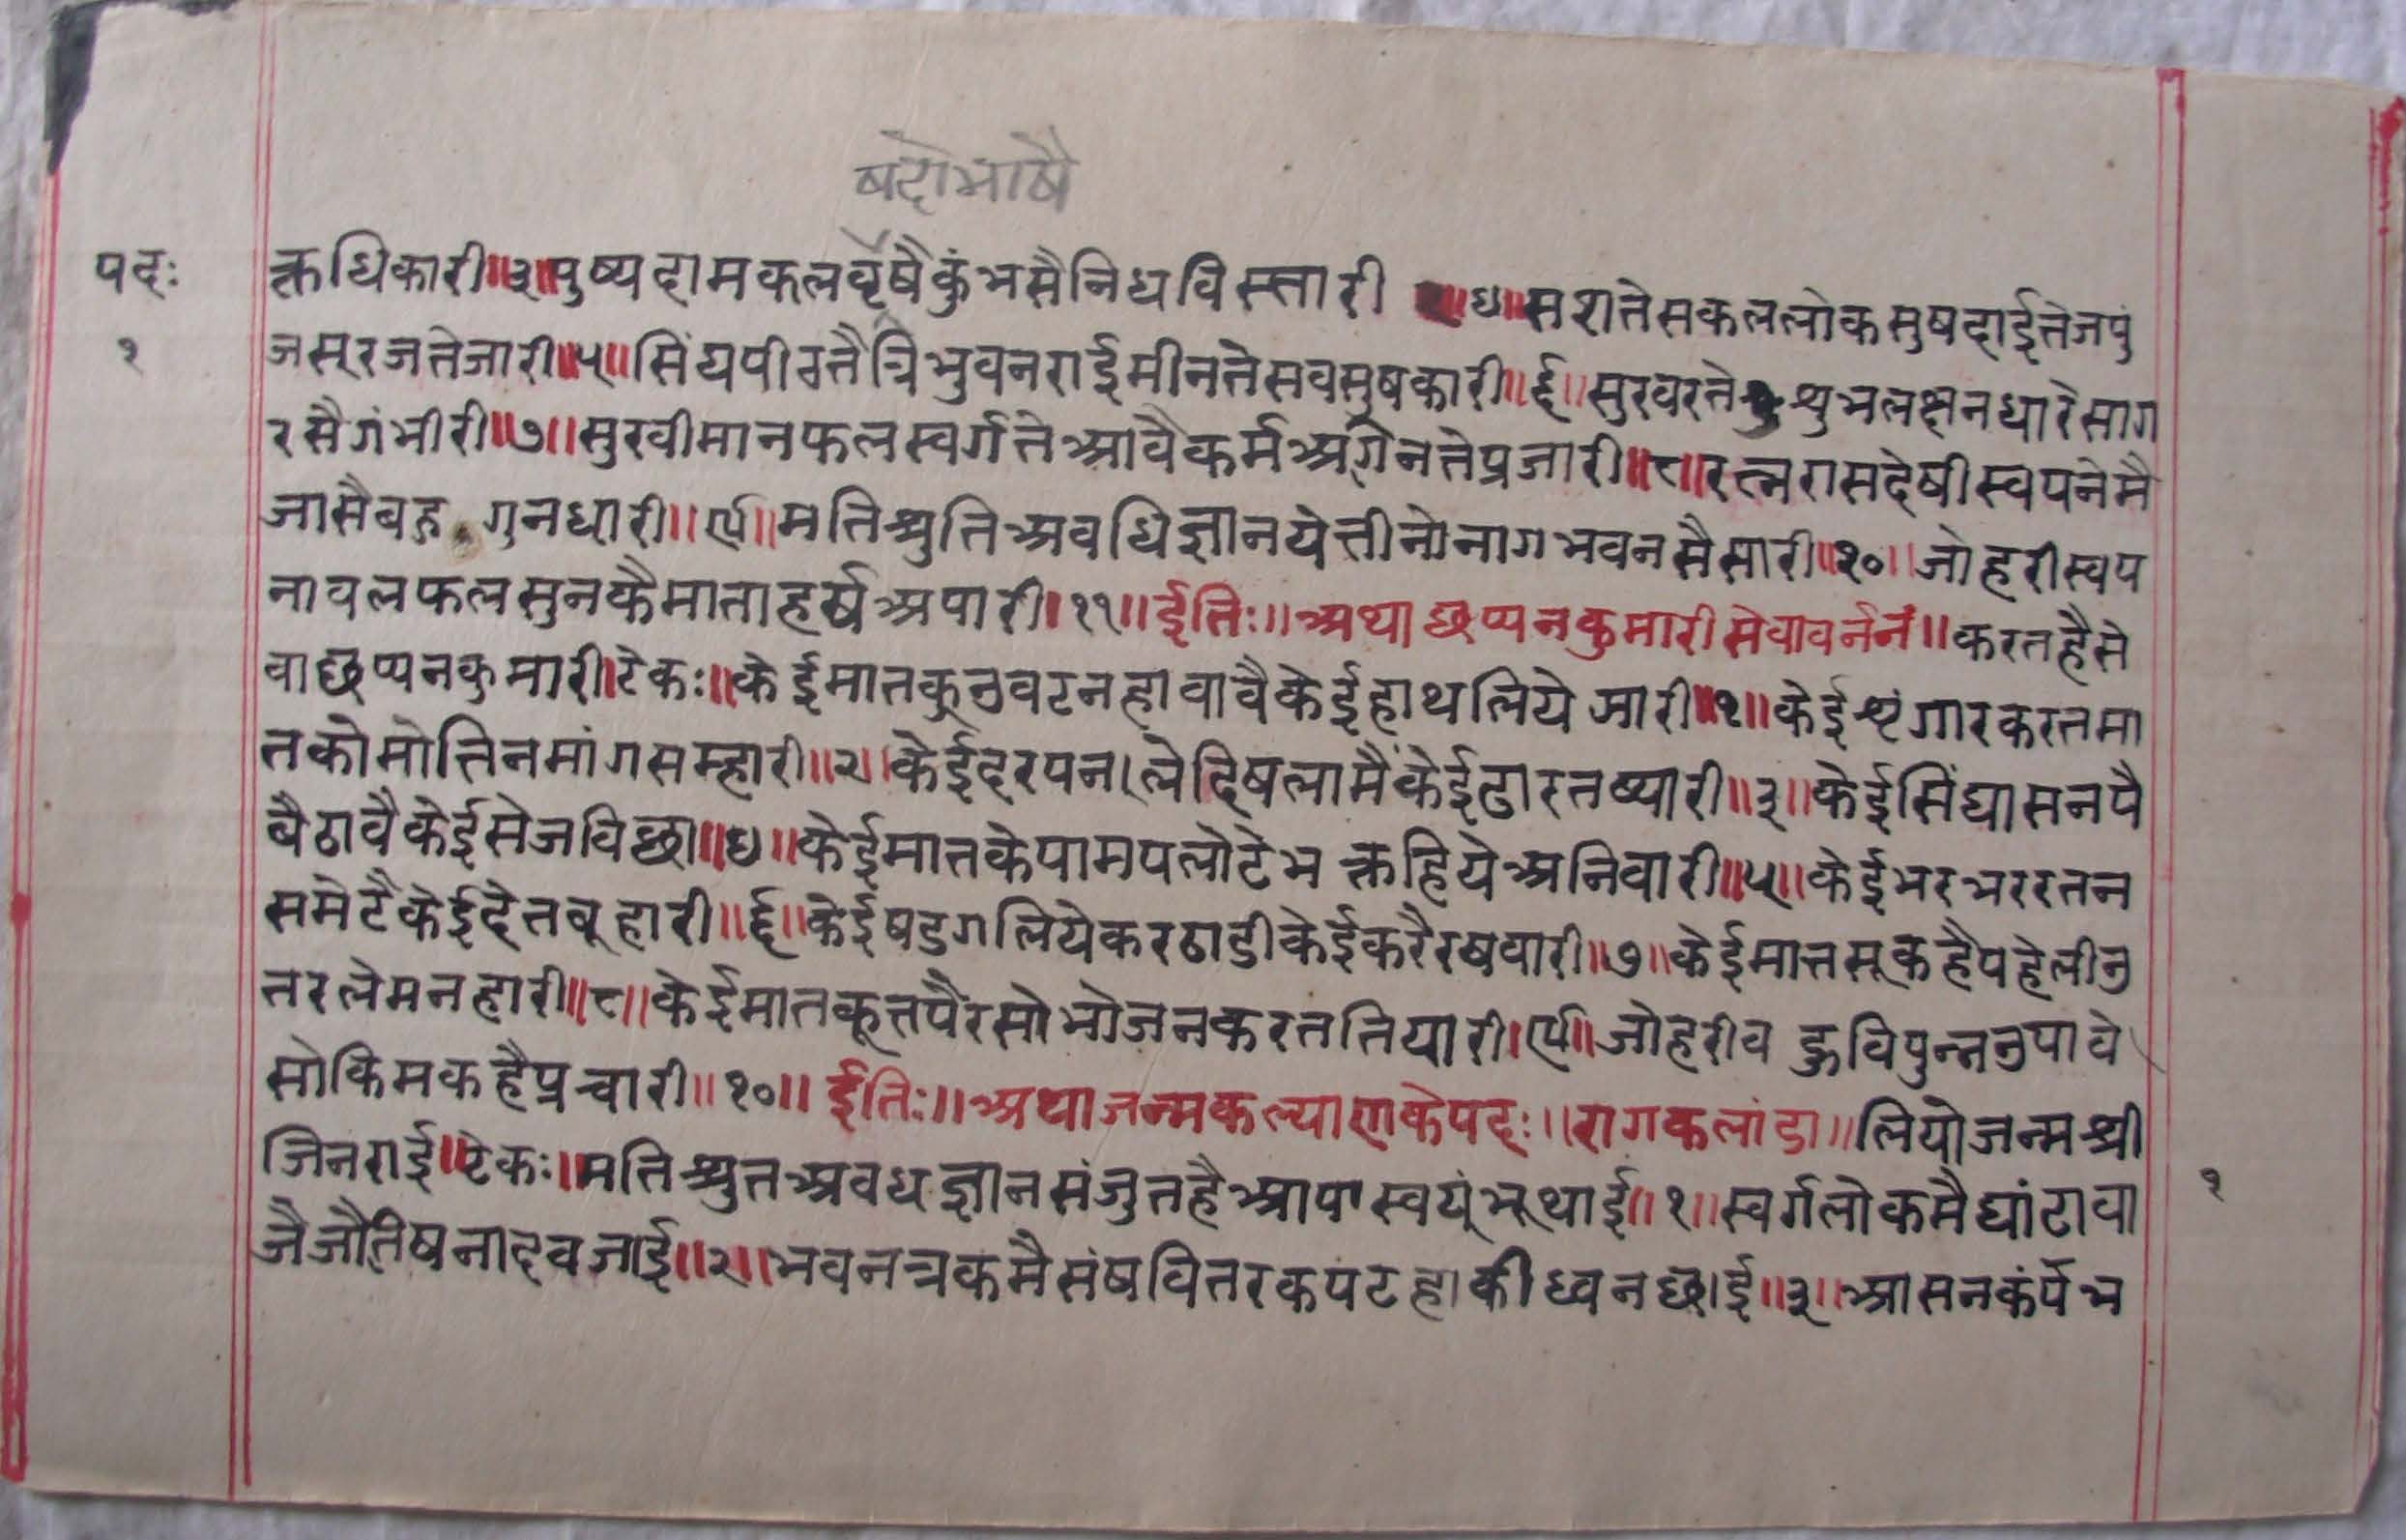 पदः
१
क्तधिकारी॥३॥पुष्पदामकलवृषैकुंभसैनिधविस्तारी ॥४॥ससीतेसकललोकसुषदाईतेजपुं
जसूरजतेजारी॥५॥सिंघपीठतैत्रिभुवनराईमीनतेसवसुषकारी॥६॥सुरवरतेशुभलक्षनधारेसाग
रसैगंभीरी॥७॥सुरवीमानफलस्वर्गतेआवैकर्मअगनितेप्रजारी॥८॥रत्नरासदेषीस्वपनेमै
जासैवहु गुनधारी॥९॥मतिश्रुतिअवधिज्ञानयेतीनोनागभवनसैसारी॥१०॥जोहरीस्वप
नावलफलसुनकैमाताहर्षअपारी॥११॥ईतिः॥अथाछप्पनकुमारीसेवावर्ननं॥करतहैसे
वाछप्पनकुमारी॥टेकः॥केईमातकुउवटनहावावैकेईहाथलियेझारी॥१॥केईश्रंगारकरतमा
तकोमोतिनमांगसम्हारी॥२॥केईदरपनलेदिषलामैंकेईढारतव्यारी॥३॥केईसिंघासनपै
बैठावैकेईसेजविछा॥४॥केईमातकेपामपलोटेभक्तहियेअनिवारी॥५॥केईभरभररतन
समेटैकेईदेतबूहारी॥६॥केईषडगलियेकरठाडीकेईकरैरषवारी॥७॥केईमातसूकहैपहेलीउ
तरलेमनहारी॥८॥केईमातकूतपैरसोभोजनकरततियारी॥९॥जोहरीव हुविपुन्नउपावे
सोकिमकहैप्रचारी॥१०॥ईतिः॥अथाजन्मकल्याणकेपदः॥रागकलांडा॥लियोजन्मश्री
जिनराई॥टेकः॥मतिश्रुतअवधज्ञानसंजुतहैआपस्वयंभूथाई॥१॥स्वर्गलोकमैघांटावा
जैजौतिषनादवजाई॥२॥भवनत्रकमैसंषवितरकपटहाकीध्वनछाई॥३॥आसनकंपैभ
१